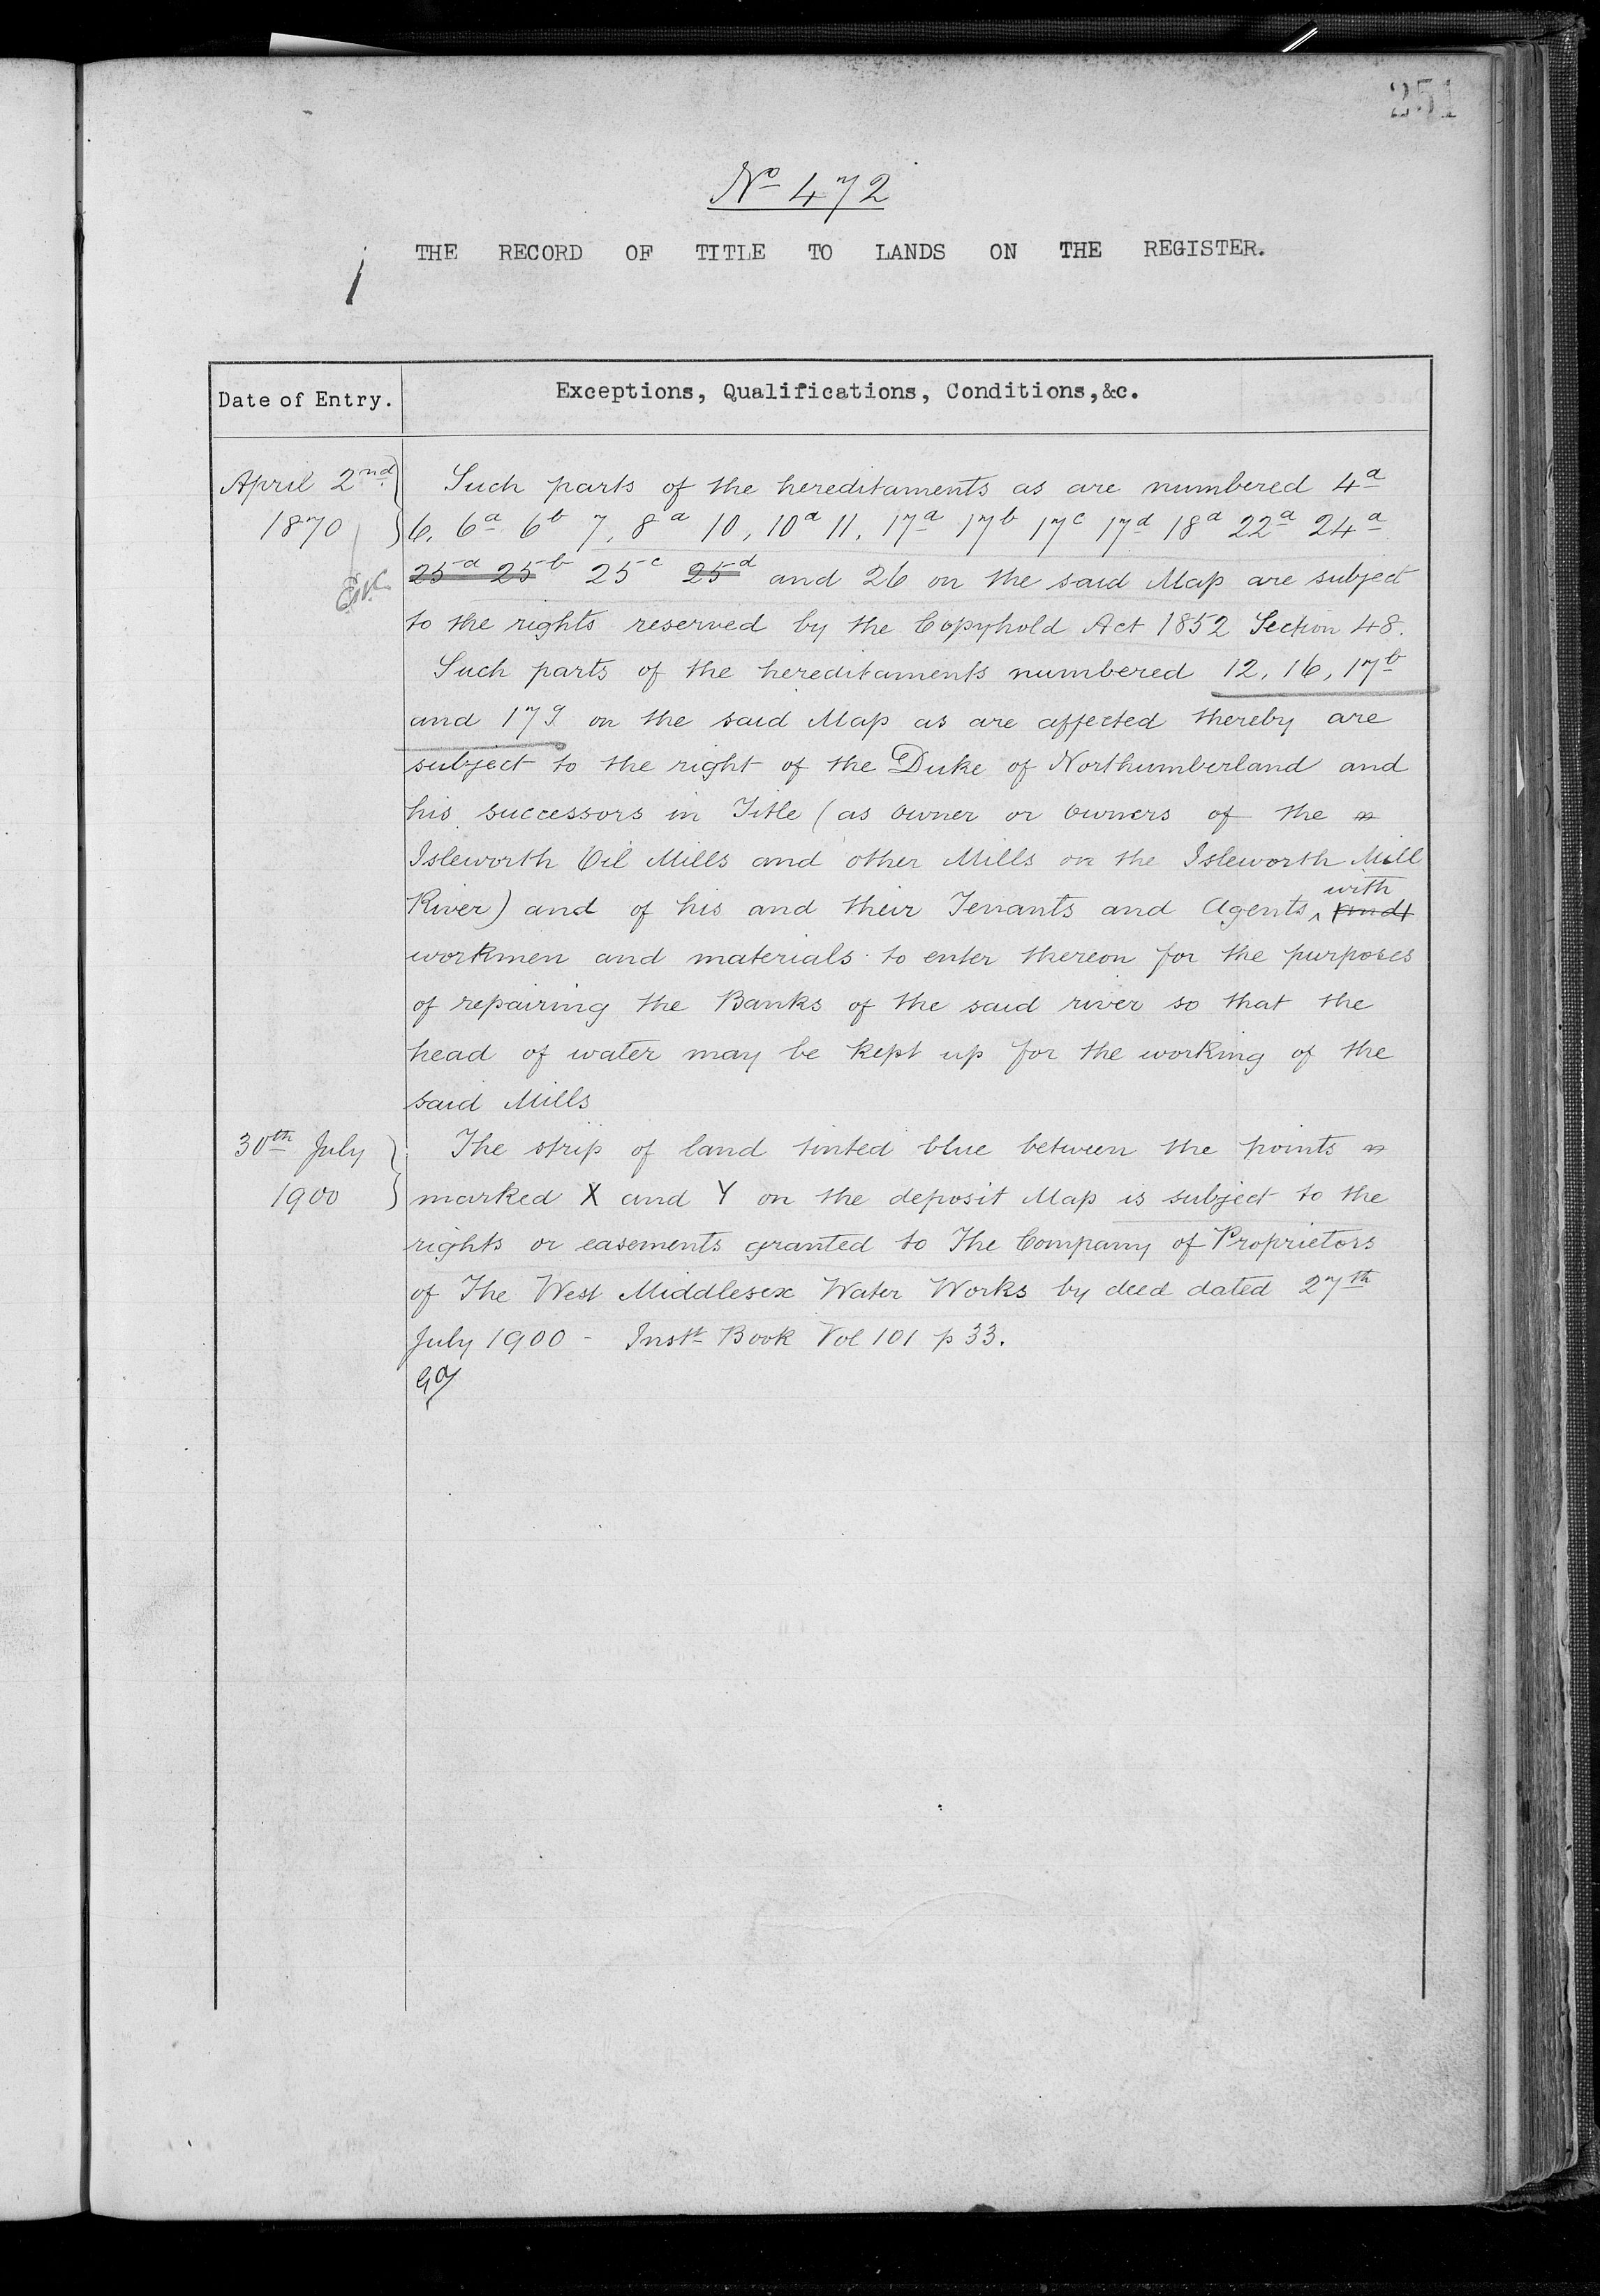 251
No 472
THE RECORD OF TITLE TO LANDS ON THE REGISTER.
Date of Entry.
Exceptions, Qualifications, Conditions,&c.
April 2nd
1870
Such parts of the hereditaments as are numbered 4a
6, 6a 6b 7, 8a 10, 10a 11, 17a 17b 17c 17d 18a 22a 24a
25a 25b 25c 25d and 26 on the said Map are subject
to the rights reserved by the Copyhold Act 1852 Section 48.
Such parts of the hereditaments numbered 12, 16, 17b
and 17g on the said Map as are affected thereby are
subject to the right of the Duke of Northumberland and
his successors in Title (as owner or owners of the
Isleworth Oil Mills and other Mills on the Isleworth Mill
River) and of his and their Tenants and Agents, with and
workmen and materials to enter thereon for the purposes
of repairing the Banks of the said river so that the
head of water may be kept up for the working of the
said Mills
30th July
1900
The strip of land tinted blue between the points
marked X and Y on the deposit Map is subject to the
rights or easements granted to The Company of Proprietors
of The West Middlesex Water Works by deed dated 27th
July 1900 - Instt Book Vol 101 p 33.